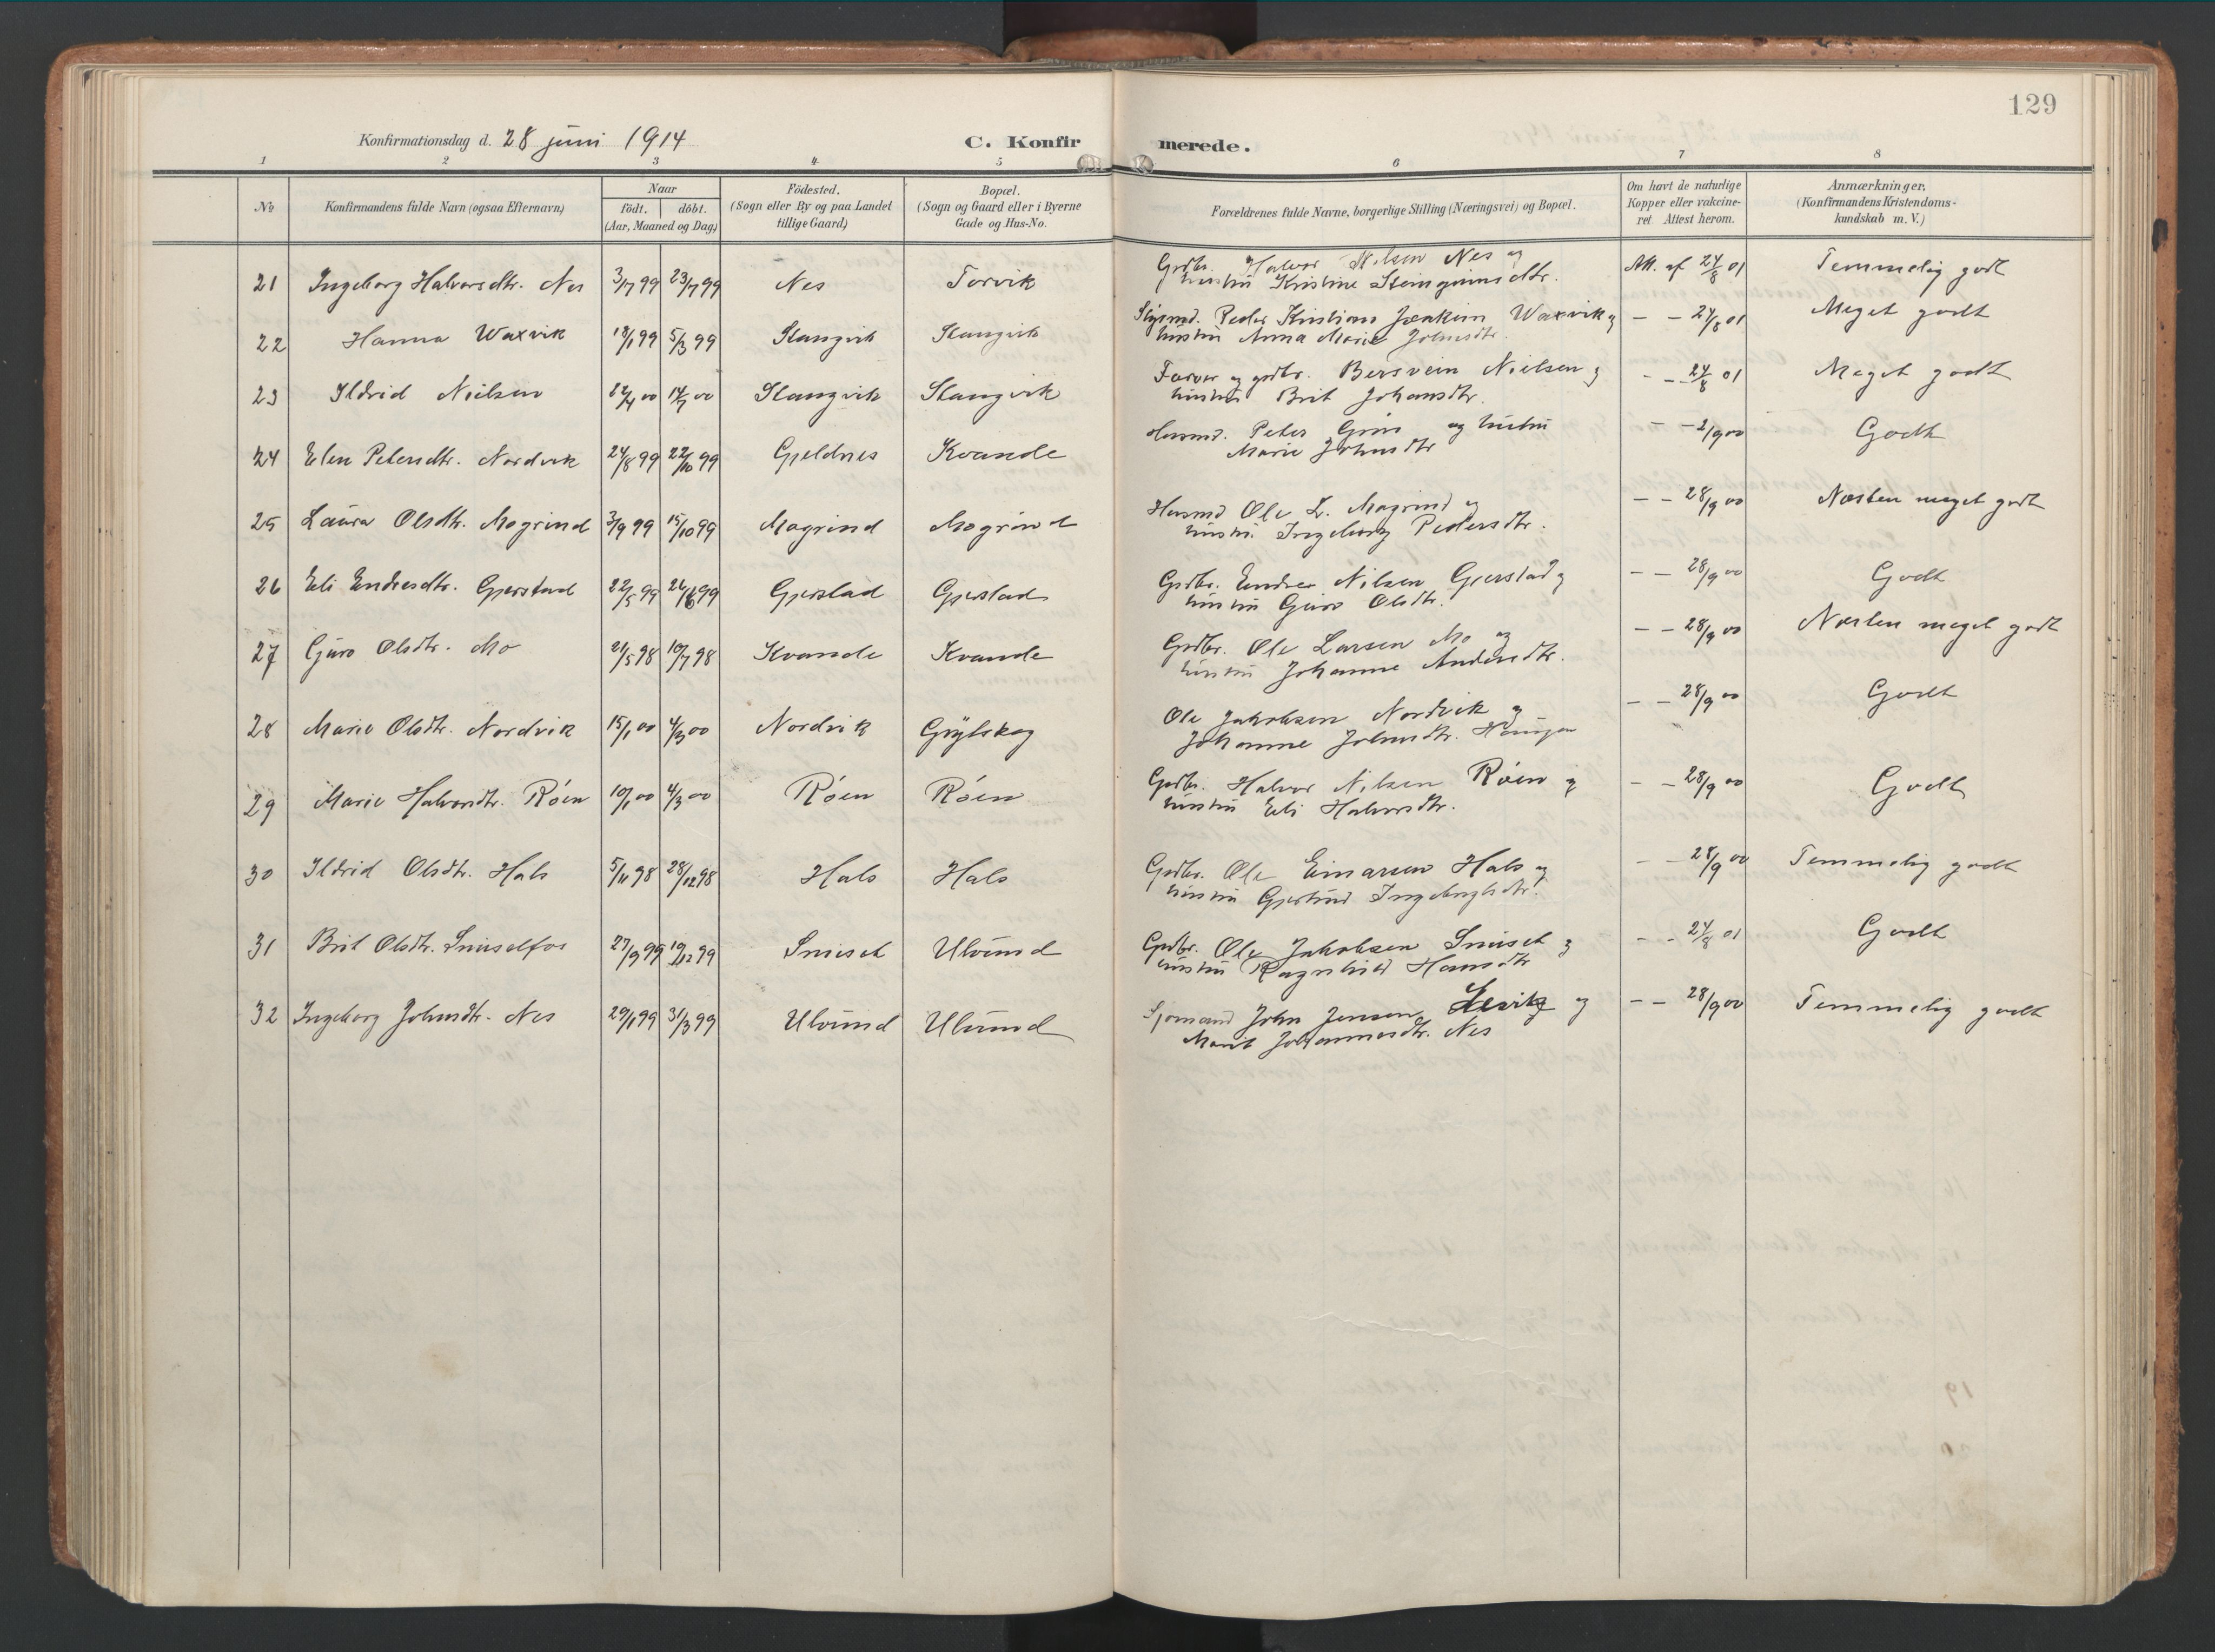 129
Konfirmationsdag d. 28 juni 1914 C. Konfirmerede.
1 2 3 4 5 6 7 8
No Konfirmandens fulde Navn (ogsaa Efternavn) Naar födt. döbt. (Aar, Maaned og Dag) Födested. (Sogn eller By og paa Landet tillige Gaard) Bopæl. (Sogn og Gaard eller i Byerne Gade og Hus-No. Forældrenes fulde Navne, borgerlige Stilling (Næringsvei) og Bopæl. Om havt de naturlige Kopper eller vakcineret Attest herom. Anmærkninger. (Konfirmandens Kristendomskundskab m. V.)
21 Ingeborg Halvorsdtr. Nes 3/7 99 23/7 99 Nes Torvik Grdbr. Halvor Nilsen Nes og Att. af 24/8 01 Temmelig godt
hustru Kristine Steingrimsdtr.
22 Hanna Waxvik 18/1 99 5/3 99 Stangvik Stangvik Peder Kristian Joakim Waxvik og - - 24/8 01 Meget godt
hustru Anna Marie Johnsdtr.
23 Ildrid Nielsen Stangvik Stangvik Farver og grdbr. Bersvein Nielsen og - - 24/8 01 Meget godt
hustru Brit Johansdtr.
24 Elen Petersdtr. Nordvik 24/8 99 22/10 99 Gjeldnes Kvande Husmd. Peter og hustru - - 2/9 00 Godt
Marie Johnsdtr
25 Laura Olsdtr. Mogrind 3/9 99 15/10 99 Mogrind Mogrind Husmd Ole L. Mogrind og - - 28/9 00 Næsten meget godt
hustru Ingeborg Pedersdtr.
26 Eli Endresdtr. Gjerstad 22/5 99 Gjerstad Gjerstad Grdbr. Endre Nilsen Gjerstad og - - 28/9 00 Godt
hustru Guro Olsdtr.
27 Guro Olsdtr. Mo 21/5 98 10/7 98 Kvande Kvande Grdbr. Ole Larsen Mo og - - 28/9 00 Næsten meget godt
hustru Johanne Andersdtr.
28 Marie Olsdtr. Nordvik 15/1 00 4/3 00 Nordvik Grytskog Ole Jakobsen Nordvik og - - 28/9 00 Godt
Johanne Johnsdtr.
29 Marie Halvorsdtr. Röen 10/1 00 4/3 00 Röen Röen Grdbr. Halvor Nilsen Röen og - - 28/9 00 Godt
hustru Eli Halvorsdtr.
30 Ildrid Olsdtr. Hals 5/11 98 28/12 98 Hals Hals Grdbr. Ole Einarsen Hals og - - 28/9 00 Temmelig godt
hustru Gjertrud Ingebrigtsdtr.
31 Brit Olsdtr. Snusetfos 27/9 99 10/12 99 Snuset Ulvund Grdbr. Ole Jakobsen Snuset og - - 24/8 01 Godt
hustru Ragnhild Hansdtr
32 Ingeborg Johnsdtr. Nes 29/1 99 31/3 99 Ulvund Ulvund Sjömand John Jensen Lesvik og - - 28/9 00 Temmelig godt
Marit Johannesdtr. Nes